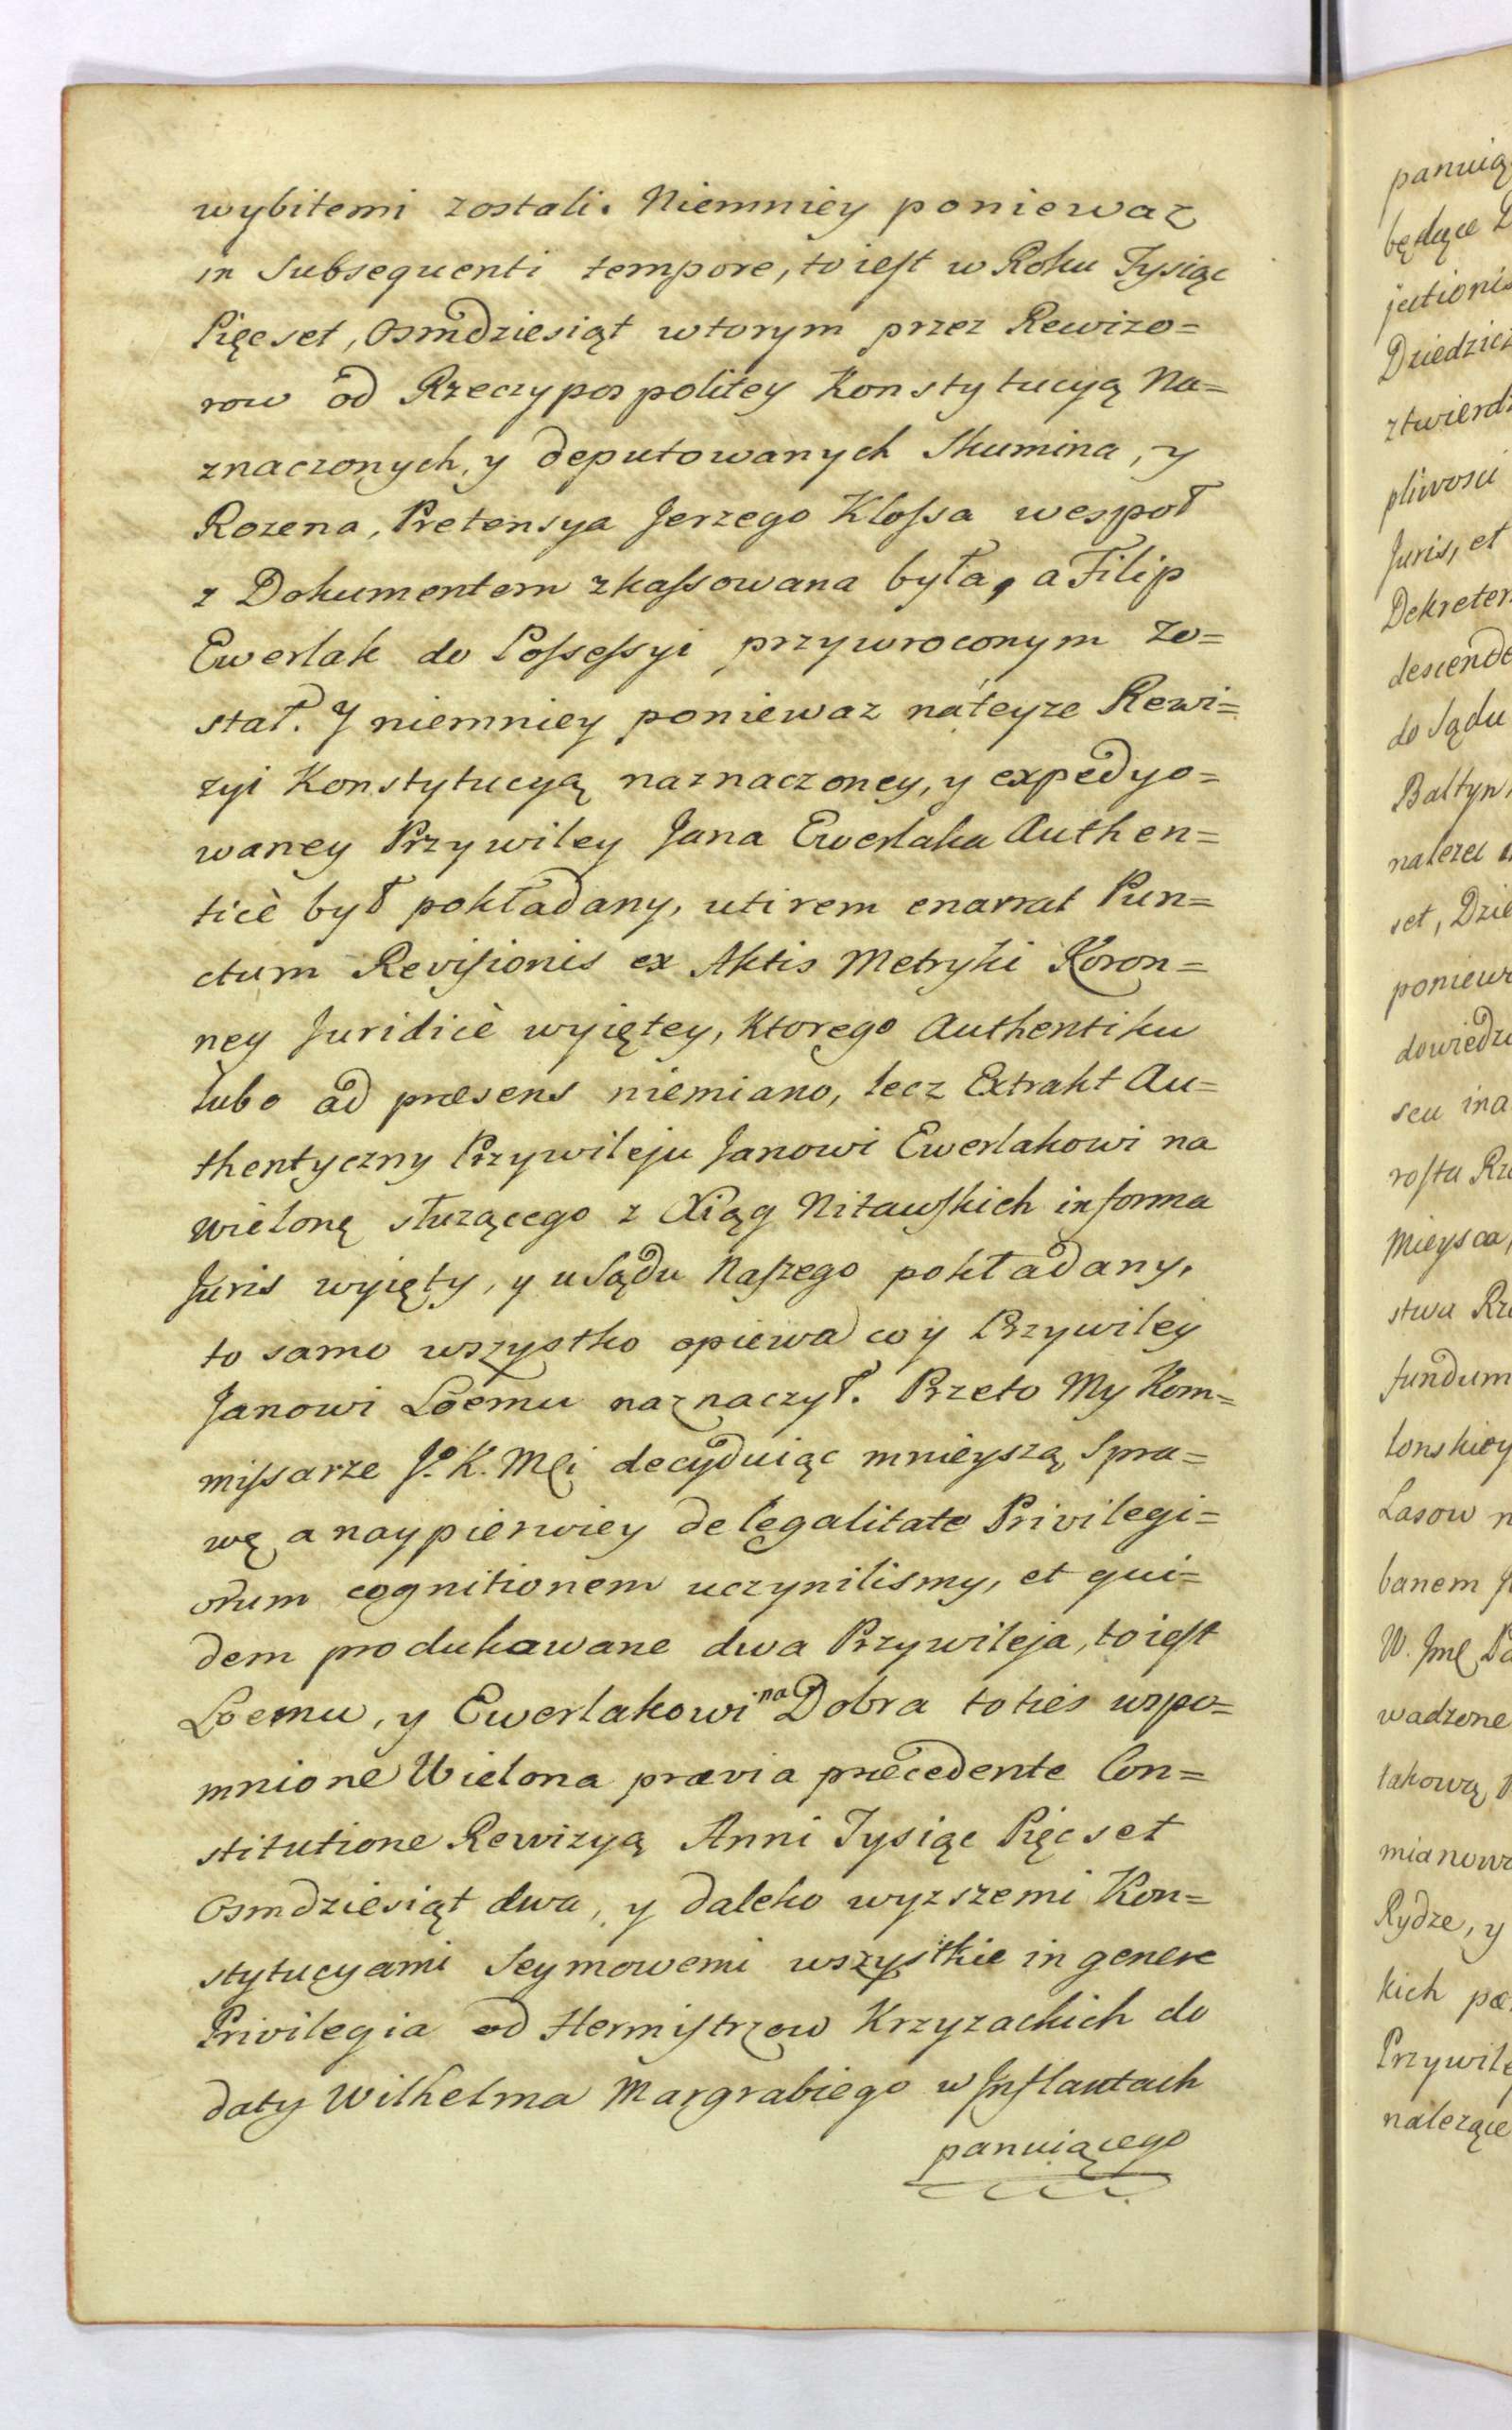 wybitemi zostali. Niemniey poniewaz
in Subsequenti tempore, to iest w Roku Tysiąc
Pięcset, Osmdziesiąt wtorym przez Rewizo=
row od Rzeczypospolitey Konstytucyą Na=
znaczonych, y deputowanych Skumina, y
Rozena, Pretensya Jerzego Klossa wespoł
z Dokumentem zkassowana była, a Filip
Ewerlak do Possessyi przywroconym zo=
stał. Y niemniey poniewaz na teyze Rewi=
zyi Konstytucyą naznaczoney, y expedyo=
waney Przywiley Jana Ewerlaka Authen=
ticè był pokładany, uti rem enarrat Pun=
ctum Revisionis ex Aktis Metryki Koron=
ney Juridicè wyiętey, Ktorego Authentiku
lubo ad præsens niemiano, lecz Extrakt Au=
thentyczny Przywileju Janowi Ewerlakowi na
Wielonę służącego z Xiąg Nitawskich in forma
Juris wyięty, y u Sądu Naszego pokładany,
to samo wszystko opiewa co y Przywiley
Janowi Loemu naznaczył. Przeto My Kom=
missarze Jo. K. Mci decyduiąc mnieyszą Spra=
wę a naypierwiey de legalitate Privilegi=
orum cognitionem uczynilismy, et qui=
dem produkowane dwa Przywileja, to iest
Loemu, y Ewerlakowi na Dobra toties wspo=
mnione Wielona prævia præcedente Con=
stitutione Rewizyą Anni Tysiąc Pięcset
Osmdziesiąt dwa, y daleko wyzszemi Kon=
stytucyami Seymowemi wszystkie in genere
Privilegia od Hermistrzow Krzyzackich do
daty Wilhelma Margrabiego w Inflantach
panuiącego
panuią
będące
jectionis
Dziedzic
ztwierdz
pliwosci
Juris, et
Dekreter
descende
do Sądu
Baltyn
nalezec
set, Dzie
poniewa
dowiedzi
seu ina
rosta Rz
Mieysca,
stwa Rz
fundum
lonskiey
Lasow n
banem
W. Jmc Pa
wadzone
takową
mianowi
Rydze, y
kich
Przywile
nalezące